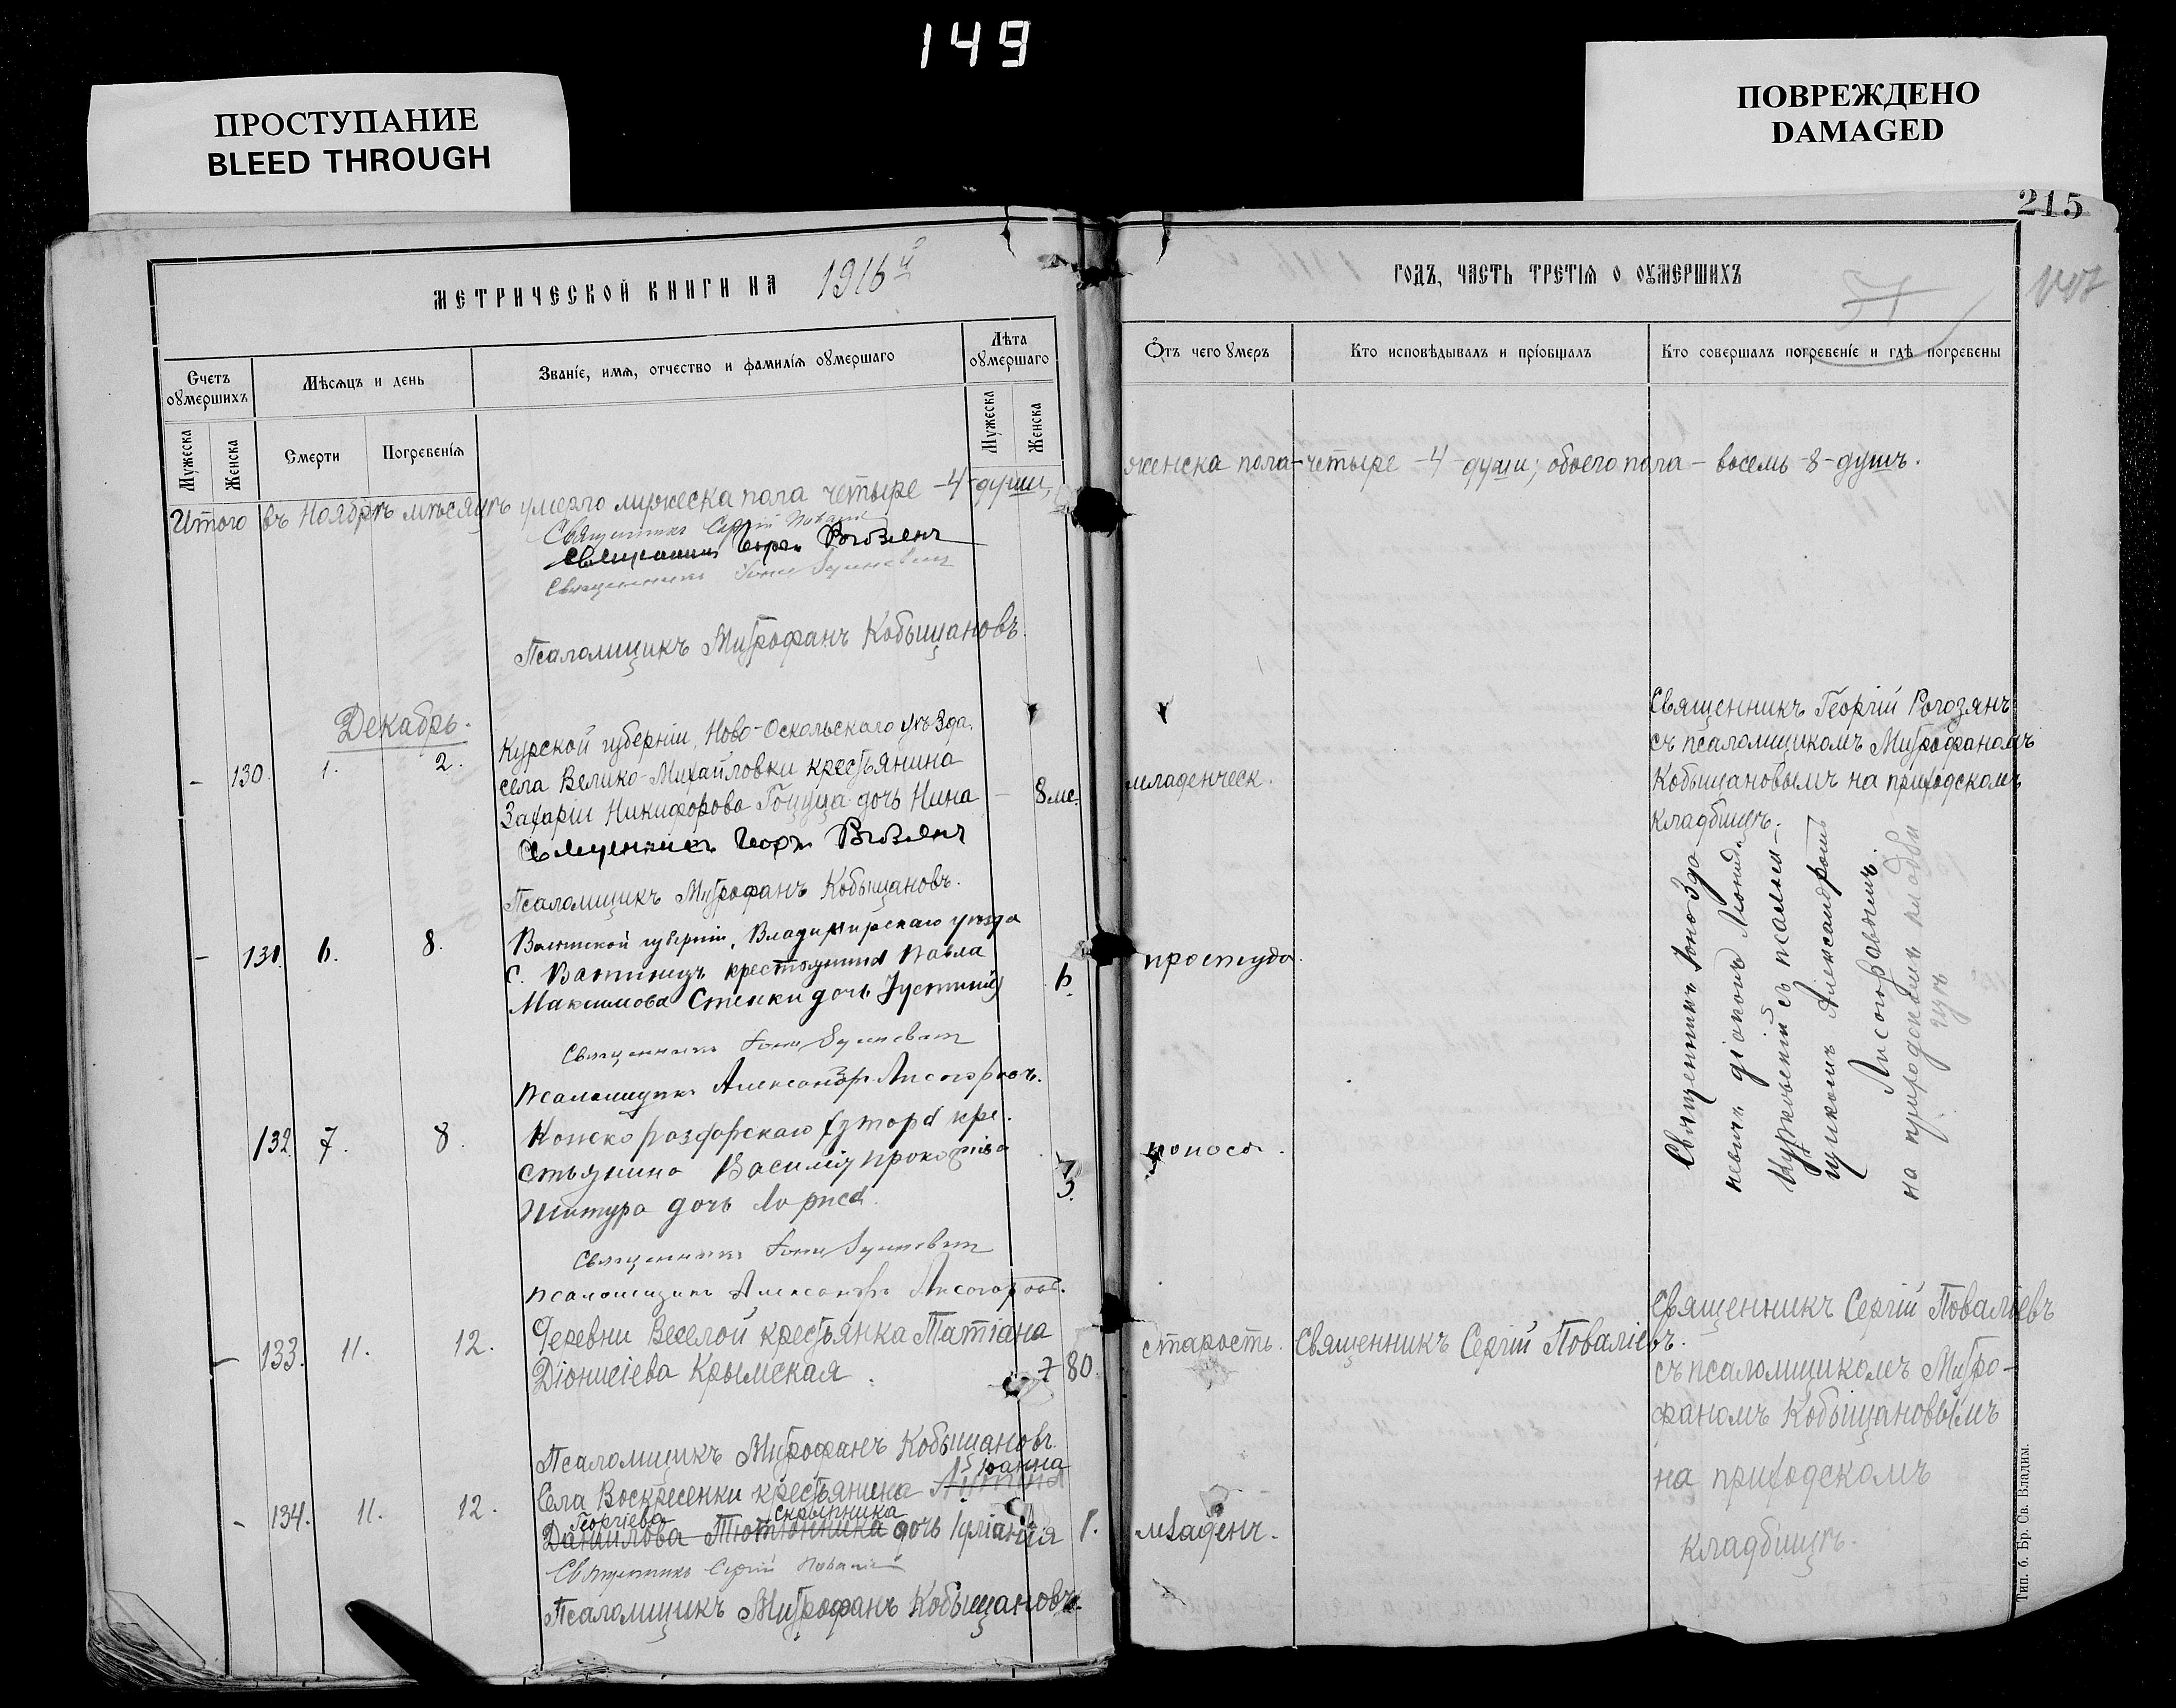 149
ПРОСТУПАНИЕ
BLEED THROUGH
ПОВРЕЖДЕНО
DAMAGED
215
МЕТРИЧЕСКОЙ КНИГИ НА 1916й
ГОДЪ, ЧАСТЬ ТРЕТІЯ О ОУМЕРШИХЪ
Счетъ оумершихъ
Мѣсяцъ и день
Званіе, имя, отчество и фамилія оумершаго
Лѣта оумершаго
Мужеска
Женска
Смерти
Погребенія
Мужеска
Женска
Отъ чего умеръ
Кто исповѣдывалъ и пріобщалъ
Кто совершалъ погребеніе и гдѣ погребены
Итого въ Ноябрѣ мѣсяцѣ умерло мужеска пола четыре -4- души,
женска пола - четыре -4- души; обоего пола - восемь -8- душъ.
Священникъ Сергій
Священникъ
Священникъ
Псаломщикъ Митрофанъ Кобыщановъ.
Декабрь.
- 130. 1. 2.
Курской губерніи, Ново-Оскольскаго уѣзда,
села Велико-Михайловки крестьянина
Захаріи Никифорова Гоцуца дочь Нина - 8 ме.
младенческ.
Священникъ Георгій Рогозянъ
съ псаломщикомъ Митрофаномъ
Кобыщановымъ на приходскомъ
кладбищѣ.
Священникъ Георгій Рогозянъ
Псаломщикъ Митрофанъ Кобыщановъ.
- 131. 6. 8.
Волынской губерніи, Владимирскаго уѣзда
с. крестьянина Павла
Максимова Стенки дочь Іустинія 6.
простуда.
Священникъ
Псаломщикъ Александръ Лисогоровъ.
Священникъ Іона
діаконъ
съ псалом-
щикомъ Александромъ
Лисогоровымъ.
на приходскомъ кладби
щѣ
132. 7. 8.
Конско раздорскаго хутора кре.
стьянина Василія Прокопіева
Шитура дочь Лариса. 3.
поносъ.
Священникъ
Псаломщикъ Александръ Лисогоровъ.
- 133. 11. 12.
Деревни Веселой крестьянка Татіана
Діонисіева Крымская. 80.
старость.
Священникъ Сергій Поваліевъ.
Священникъ Сергій Поваліевъ
съ псаломщикомъ Митро-
фаномъ Кобыщановымъ
на приходскомъ
кладбищѣ.
Псаломщикъ Митрофанъ Кобыщановъ.
- 134. 11. 12.
Іоанна
Села Воскресенки крестьянина
Георгіева Скрыпника
Данилова Тютюнника дочь Іуліанія 1.
младенч.
Священникъ Сергій
Псаломщикъ Митрофанъ Кобыщановъ.
Тип. б. Бр. Св. Владим.